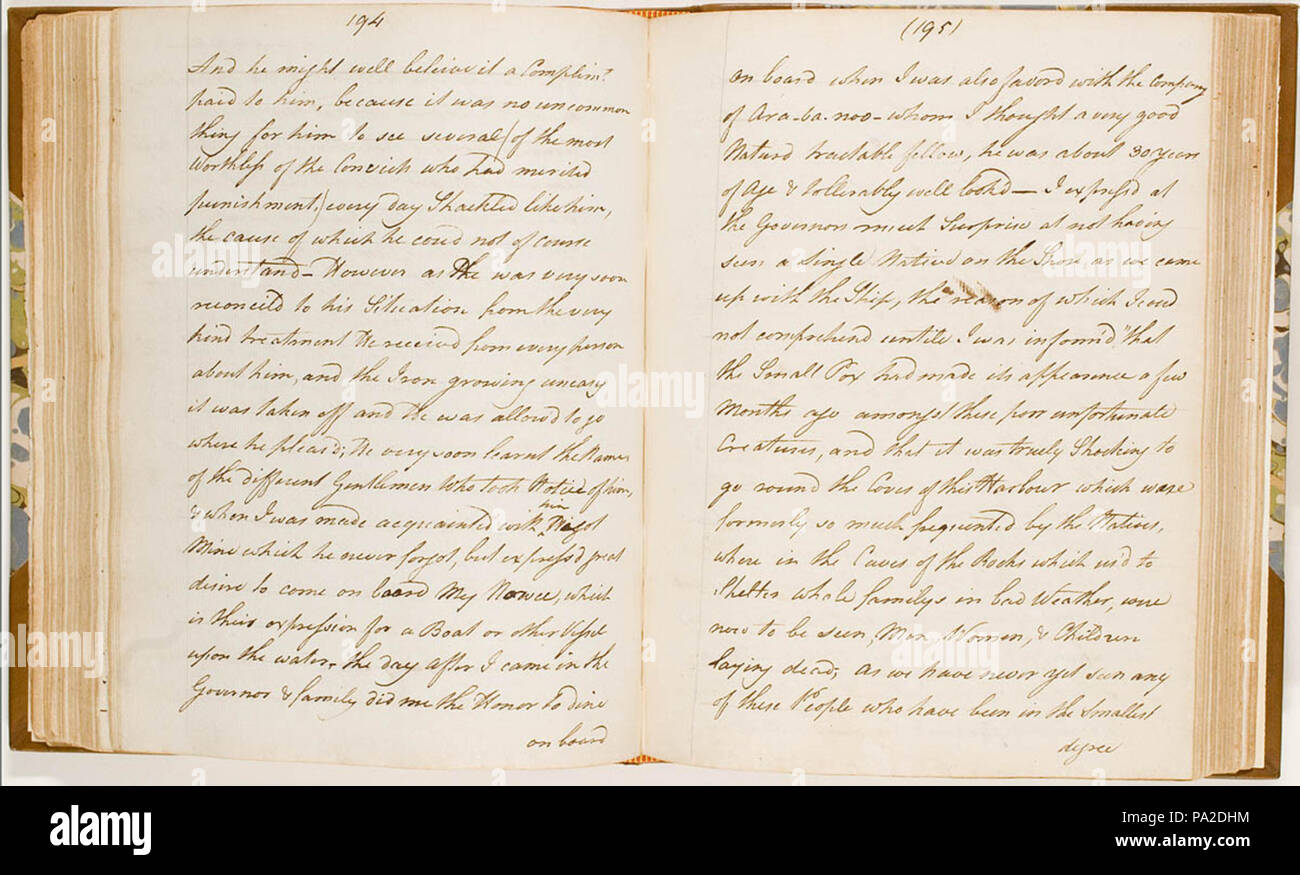 194
And he might well beleive it a Complimt.
paid to him, because it was no uncommon
thing for him to see several (of the most
Worthless of the Convicts who had merited
punishment) every day Shackled like him,
the cause of which he could not of course
understand - However as He was very soon
reconcil'd to his Situation from the very
kind treatment He received from every person
about him, and the Iron growing uneasy
it was taken off and He was allow'd to go
where he pleas'd; He very soon learnt the Names
of the different Gentlemen who took Notice of him,
& when I was made acquainted with him
got
Mine which he never forgot, but express'd great
desire to come on board My Nowee, which
is their expression for a Boat or other Vessel
upon the water - the day after I came in the
Governor & family did me the Honor to dine
on board
(195)
on board when I was also favord with the Company
of Ara-ba-noo - whom I thought a very good
Naturd tractable fellow, he was about 30 Years
of Age & tollerably well look'd — I express'd at
the Governors much Surprise at not having
seen a Single Native on the Shore as we came
up with the Ship, the reason of which I coud
not comprehend untile I was inform'd, "that
the Small Pox had made its appearence a few
Months ago amongst these poor unfortunate
Creatures, and that it was truely Shocking to
go round the Coves of this Harbour which were
formerly so much frequented by the Natives,
where in the Caves of the Rocks which us'd to
Shelter whole familys in bad Weather, were
now to be seen, Men, Women, & Children
laying dead; As we have never yet seen any
of these People who have been in the Smallest
degree
alamy
Image ID: PA2DHM
www.alamy.com